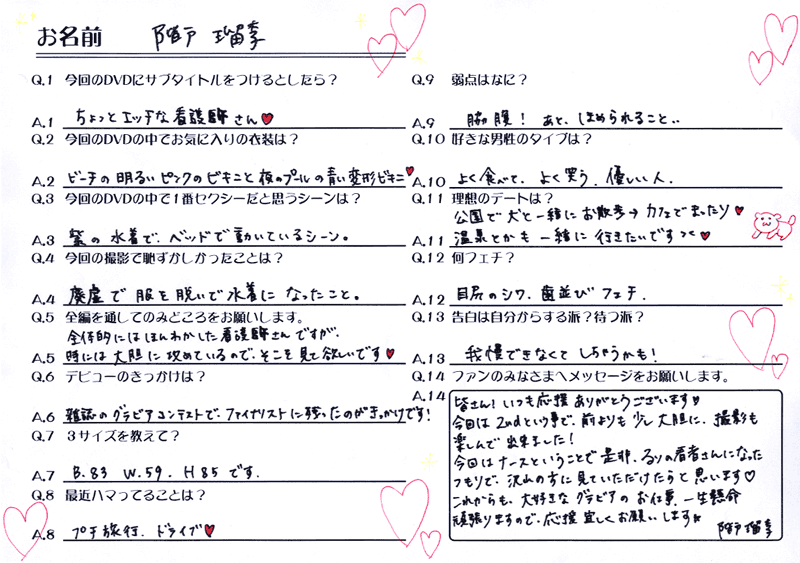 お名前 陣戸 瑠季
Q.1 今回のDVDにサブタイトルをつけるとしたら？
A.1 ちょっとエッチな看護師さん♥
Q.2 今回のDVDの中でお気に入りの衣装は？
A.2 ビーチの明るいピンクのビキニと夜のプールの青い変形ビキニ♥
Q.3 今回のDVDの中で1番セクシーだと思うシーンは？
A.3 紫の水着で、ベッドで動いているシーン。
Q.4 今回の撮影で恥ずかしかったことは？
A.4 廃虚で服を脱いで水着になったこと。
Q.5 全編を通してのみどころをお願いします。
全体的にはほんわかした看護師さんですが、
A.5 時には大胆に攻めているので、そこを見て欲しいです♥
Q.6 デビューのきっかけは？
A.6 雑誌のグラビアコンテストで、ファイナリストに残ったのがきっかけです！
Q.7 3サイズを教えて？
A.7 B.83 W.59. H85 です.
Q.8 最近ハマってることは？
A.8 プチ旅行、ドライブ♥
Q.9 弱点はなに？
A.9 脇腹！ あと、ほめられること..
Q.10 好きな男性のタイプは？
A.10 よく食べて、よく笑う、優しい人.
Q.11 理想のデートは？
公園で犬と一緒にお散歩→カフェでまったり♥
A.11 温泉とかも一緒に行きたいです><♥
Q.12 何フェチ？
A.12 目尻のシワ、歯並びフェチ.
Q.13 告白は自分からする派？待つ派？
A.13 我慢できなくてしちゃうかも！
Q.14 ファンのみなさまへメッセージをお願いします。
A.14
皆さん！いつも応援ありがとうございます♡
今回は2ndという事で、前よりも少し大胆に、撮影も
楽しんで出来ました！
今回はナースということで是非、るりの看者さんになった
つもりで、沢山の方に見ていただけたらと思います♡
これからも、大好きなグラビアのお仕事、一生懸命
頑張りますので、応援宜しくお願いします
陣戸瑠季